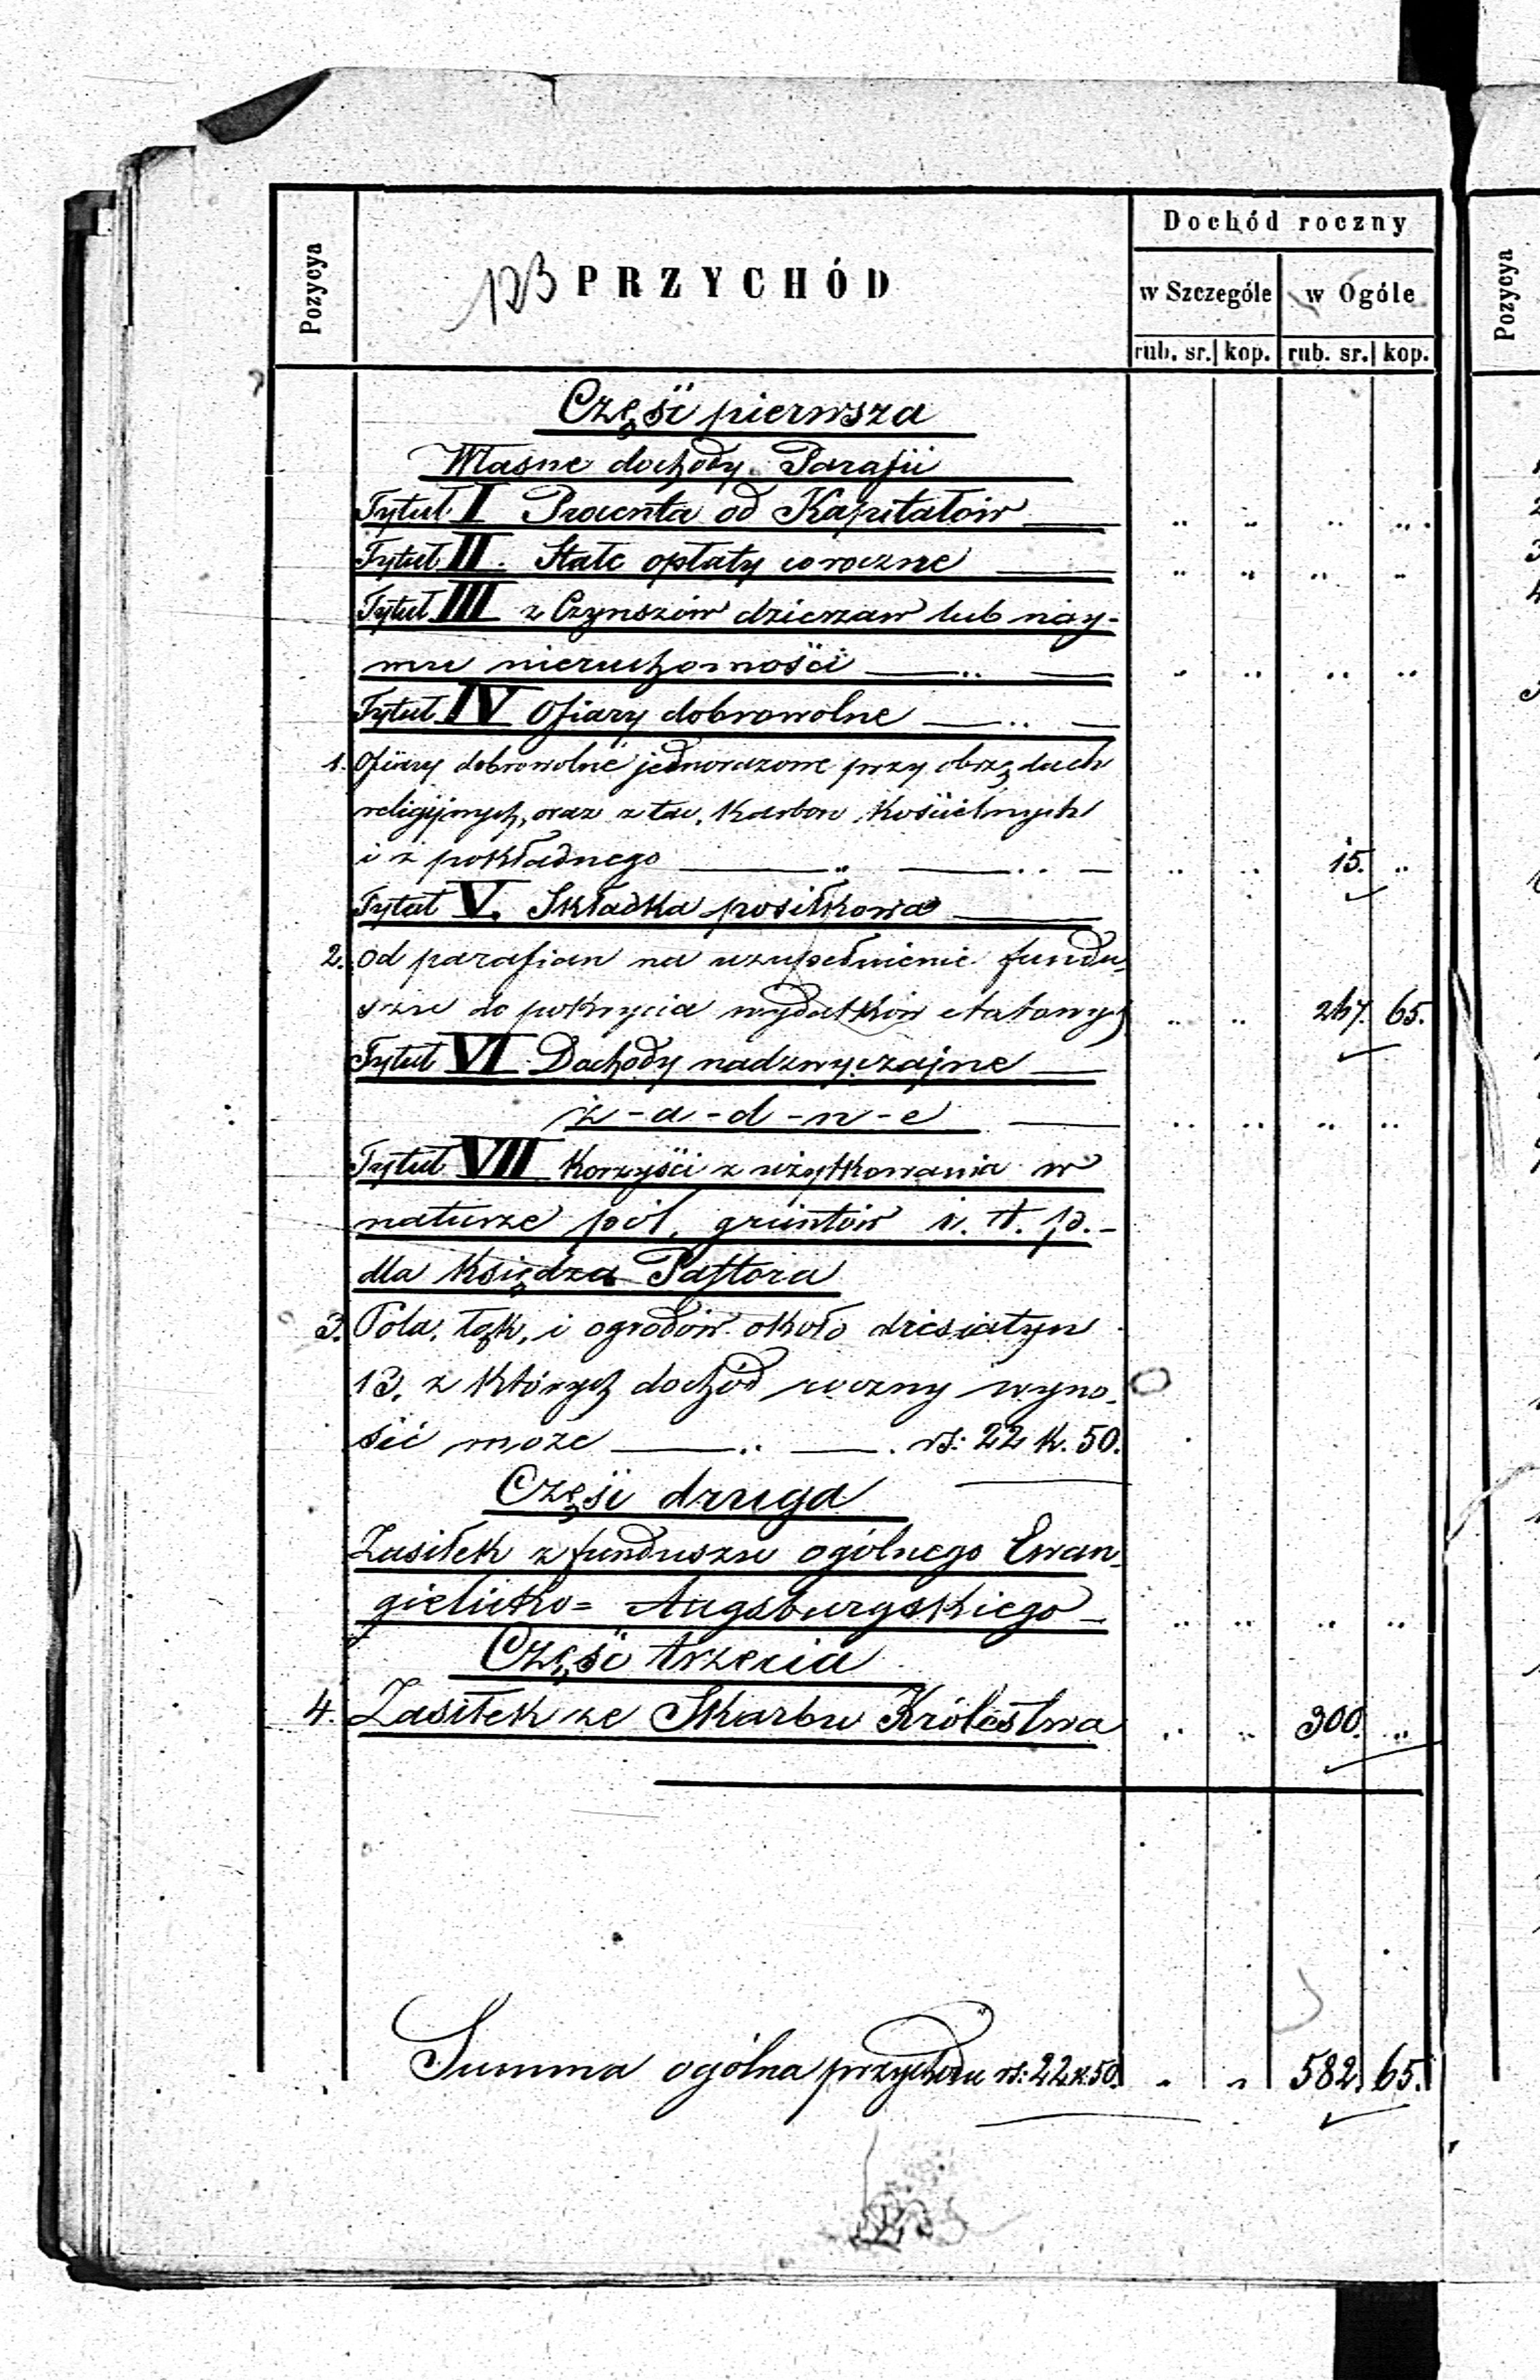 Dochód roczny
Pozycya
123 PRZYCHÓD
w Szczególe w Ogóle
Pozycya
rub. sr. kop. rub. sr. kop.
Część pierwsza
Własne dochody Parafii
Tytuł I Procenta od Kapitałów
Tytuł II. Stałe opłaty coroczne
Tytuł III z Czynszów dzierzaw lub nay-
mu nieruchomości
Tytuł IV Ofiary dobrowolne
1. Ofiary dobrowolne jednorazowe przy obrzędach
religijnych, oraz z tac, Karbon Kościelnych
i z pokładnego 15. "
Tytuł V. Składka posiłkowa
2. Od parafian na uzupełnienie fundu-
szu do pokrycia wydatków etatowych 267. 65.
Tytuł VI Dochody nadzwyczajne
ż-a-d-n-e
Tytuł VII Korzyści z użytkowania w
naturze pól, gruntów i. t. p.-
dla Księdza Pastora
3. Pola, łąk, i ogrodów około dziesiatyn
13, z których dochód roczny wyno-
sić może rs: 22 k. 50.
Część druga
Zasiłek z funduszu ogólnego Ewan-
gielicko= Augsburgskiego
Część trzecia
4. Zasiłek ze Skarbu Królestwa 300. "
Summa ogólna przychodu rs: 22 k 50. " " 582. 65.